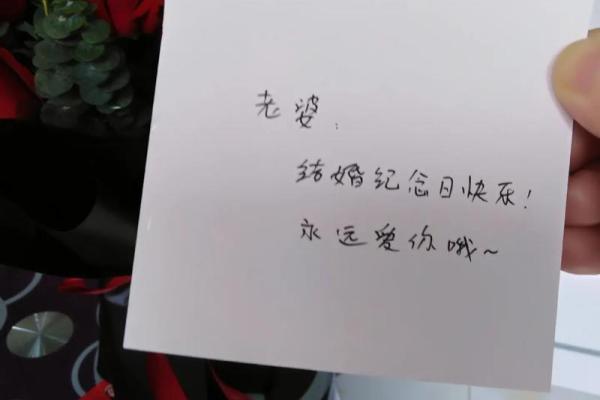 老婆：
结婚纪念日快乐！
永远爱你哦～